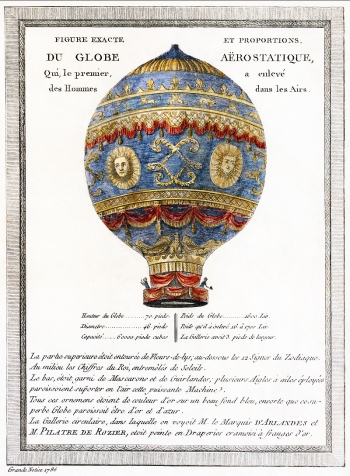 FIGURE EXACTE ET PROPORTIONS.
DU GLOBE AËROSTATIQUE,
Qui, le premier, a enlevé
des Hommes dans les Airs.
Hauteur du Globe ........ 70 pieds. Poids du Globe ........ 1600 Liv.
Diametre ........ 46 pieds Poids qu'il a enlevé 16 à 1700 Liv.
Capacité ........ 60000 pieds cubes La Gallerie avoit 3 pieds de largeur.
La partie superieure étoit entourée de Fleurs-de-lys, au-dessous les 12 Signes du Zodiaque.
Au milieu les Chiffres du Roi, entremêlés de Soleils.
Le bas, étoit garni de Mascarons et de Guirlandes; plusieurs Aigles à ailes éployées
paroissoient suporter en l'air cette puissante Machine.
Tous ces ornemens étoient de couleur d'or sur un beau fond bleu, ensorte que ce su-
perbe Globe paroissoit être d'or et d'azur.
La Gallerie circulaire, dans laquelle on voyoit M. le Marquis D'ARLANDES et
M. PILATRE DE ROZIER, étoit peinte en Draperies cramoisi à franges d'or.
1786